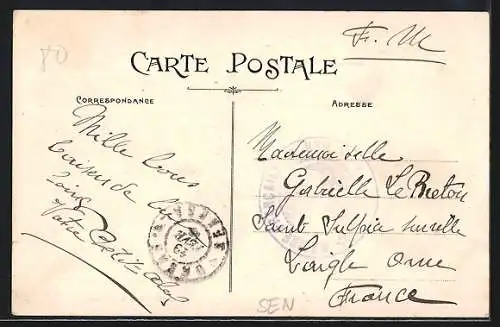 80
F. M
CARTE POSTALE
CORRESPONDANCE
ADRESSE
Mille bons
baisers de
loin
Votre
Mademoiselle
Gabrielle Le Breton
Sainte Sulpice sur rille
Laigle Orne
France
SEN